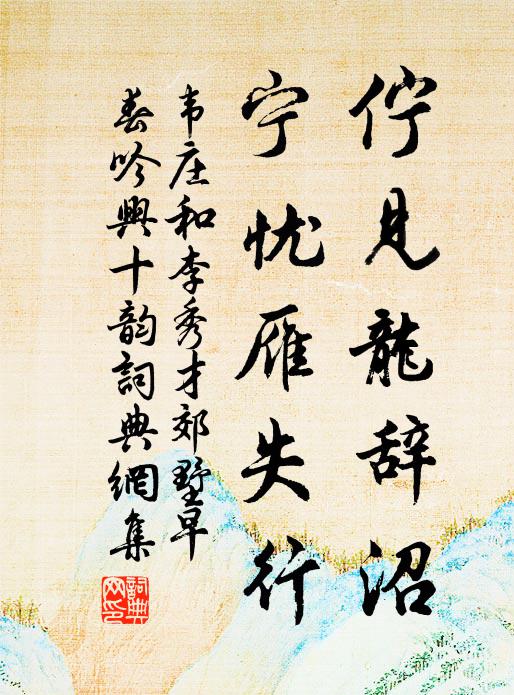 伫见龍辞沼
宁忧雁失行
韦庄和李秀才郊墅早
春吟興十韵詞典網集
詞典網印